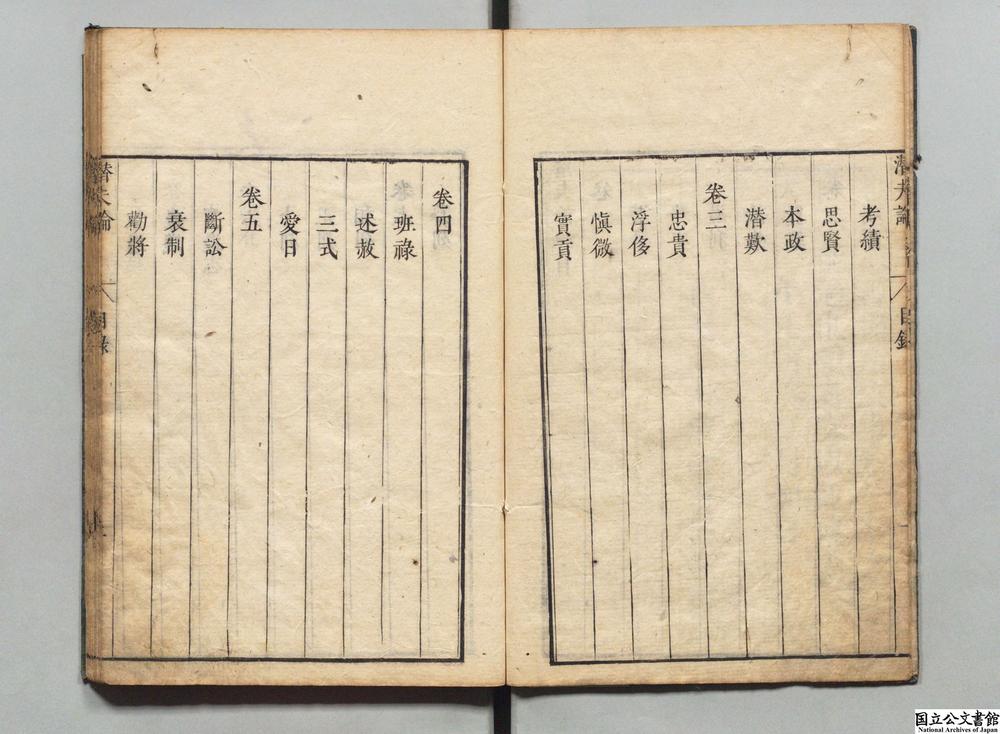 考績
思賢
本政
潜歎
卷三
忠貴
浮侈
愼微
實貢
卷四
班祿
述赦
三式
愛日
卷五
斷訟
衰制
勸將
潛夫論
目錄
国立公文書館
National Archives of Japan